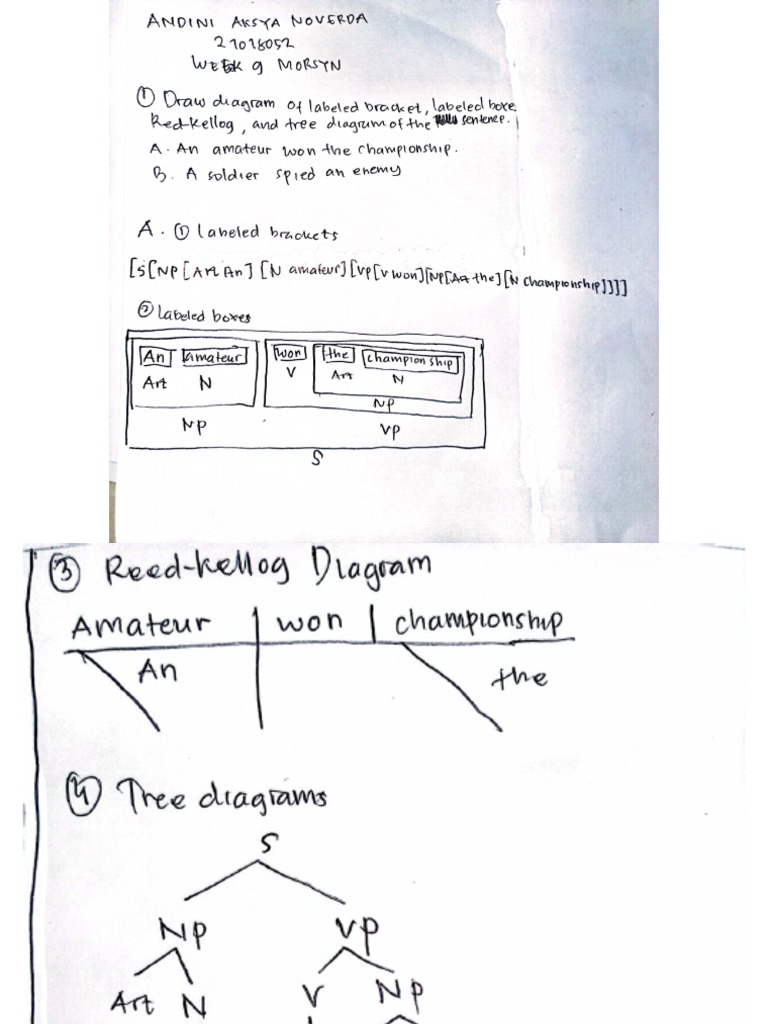 ANDINI AKSYA NOVERDA
21018052
WEEK 9 MORSYN
① Draw diagram of labeled bracket, labeled boxe
Red-kellog, and tree diagram of the sentence.
A. An amateur won the championship.
B. A soldier spied an enemy
A. ① Labeled brackets
[S[NP[Art An] [N amateur][VP[V won][NP[Art the][N championship]]]]
② Labeled boxes
An amateur won the championship
Art N V Art N
NP
NP VP
S
③ Reed-kellog Diagram
Amateur won championship
An the
④ Tree diagrams
S
NP VP
Art N V NP